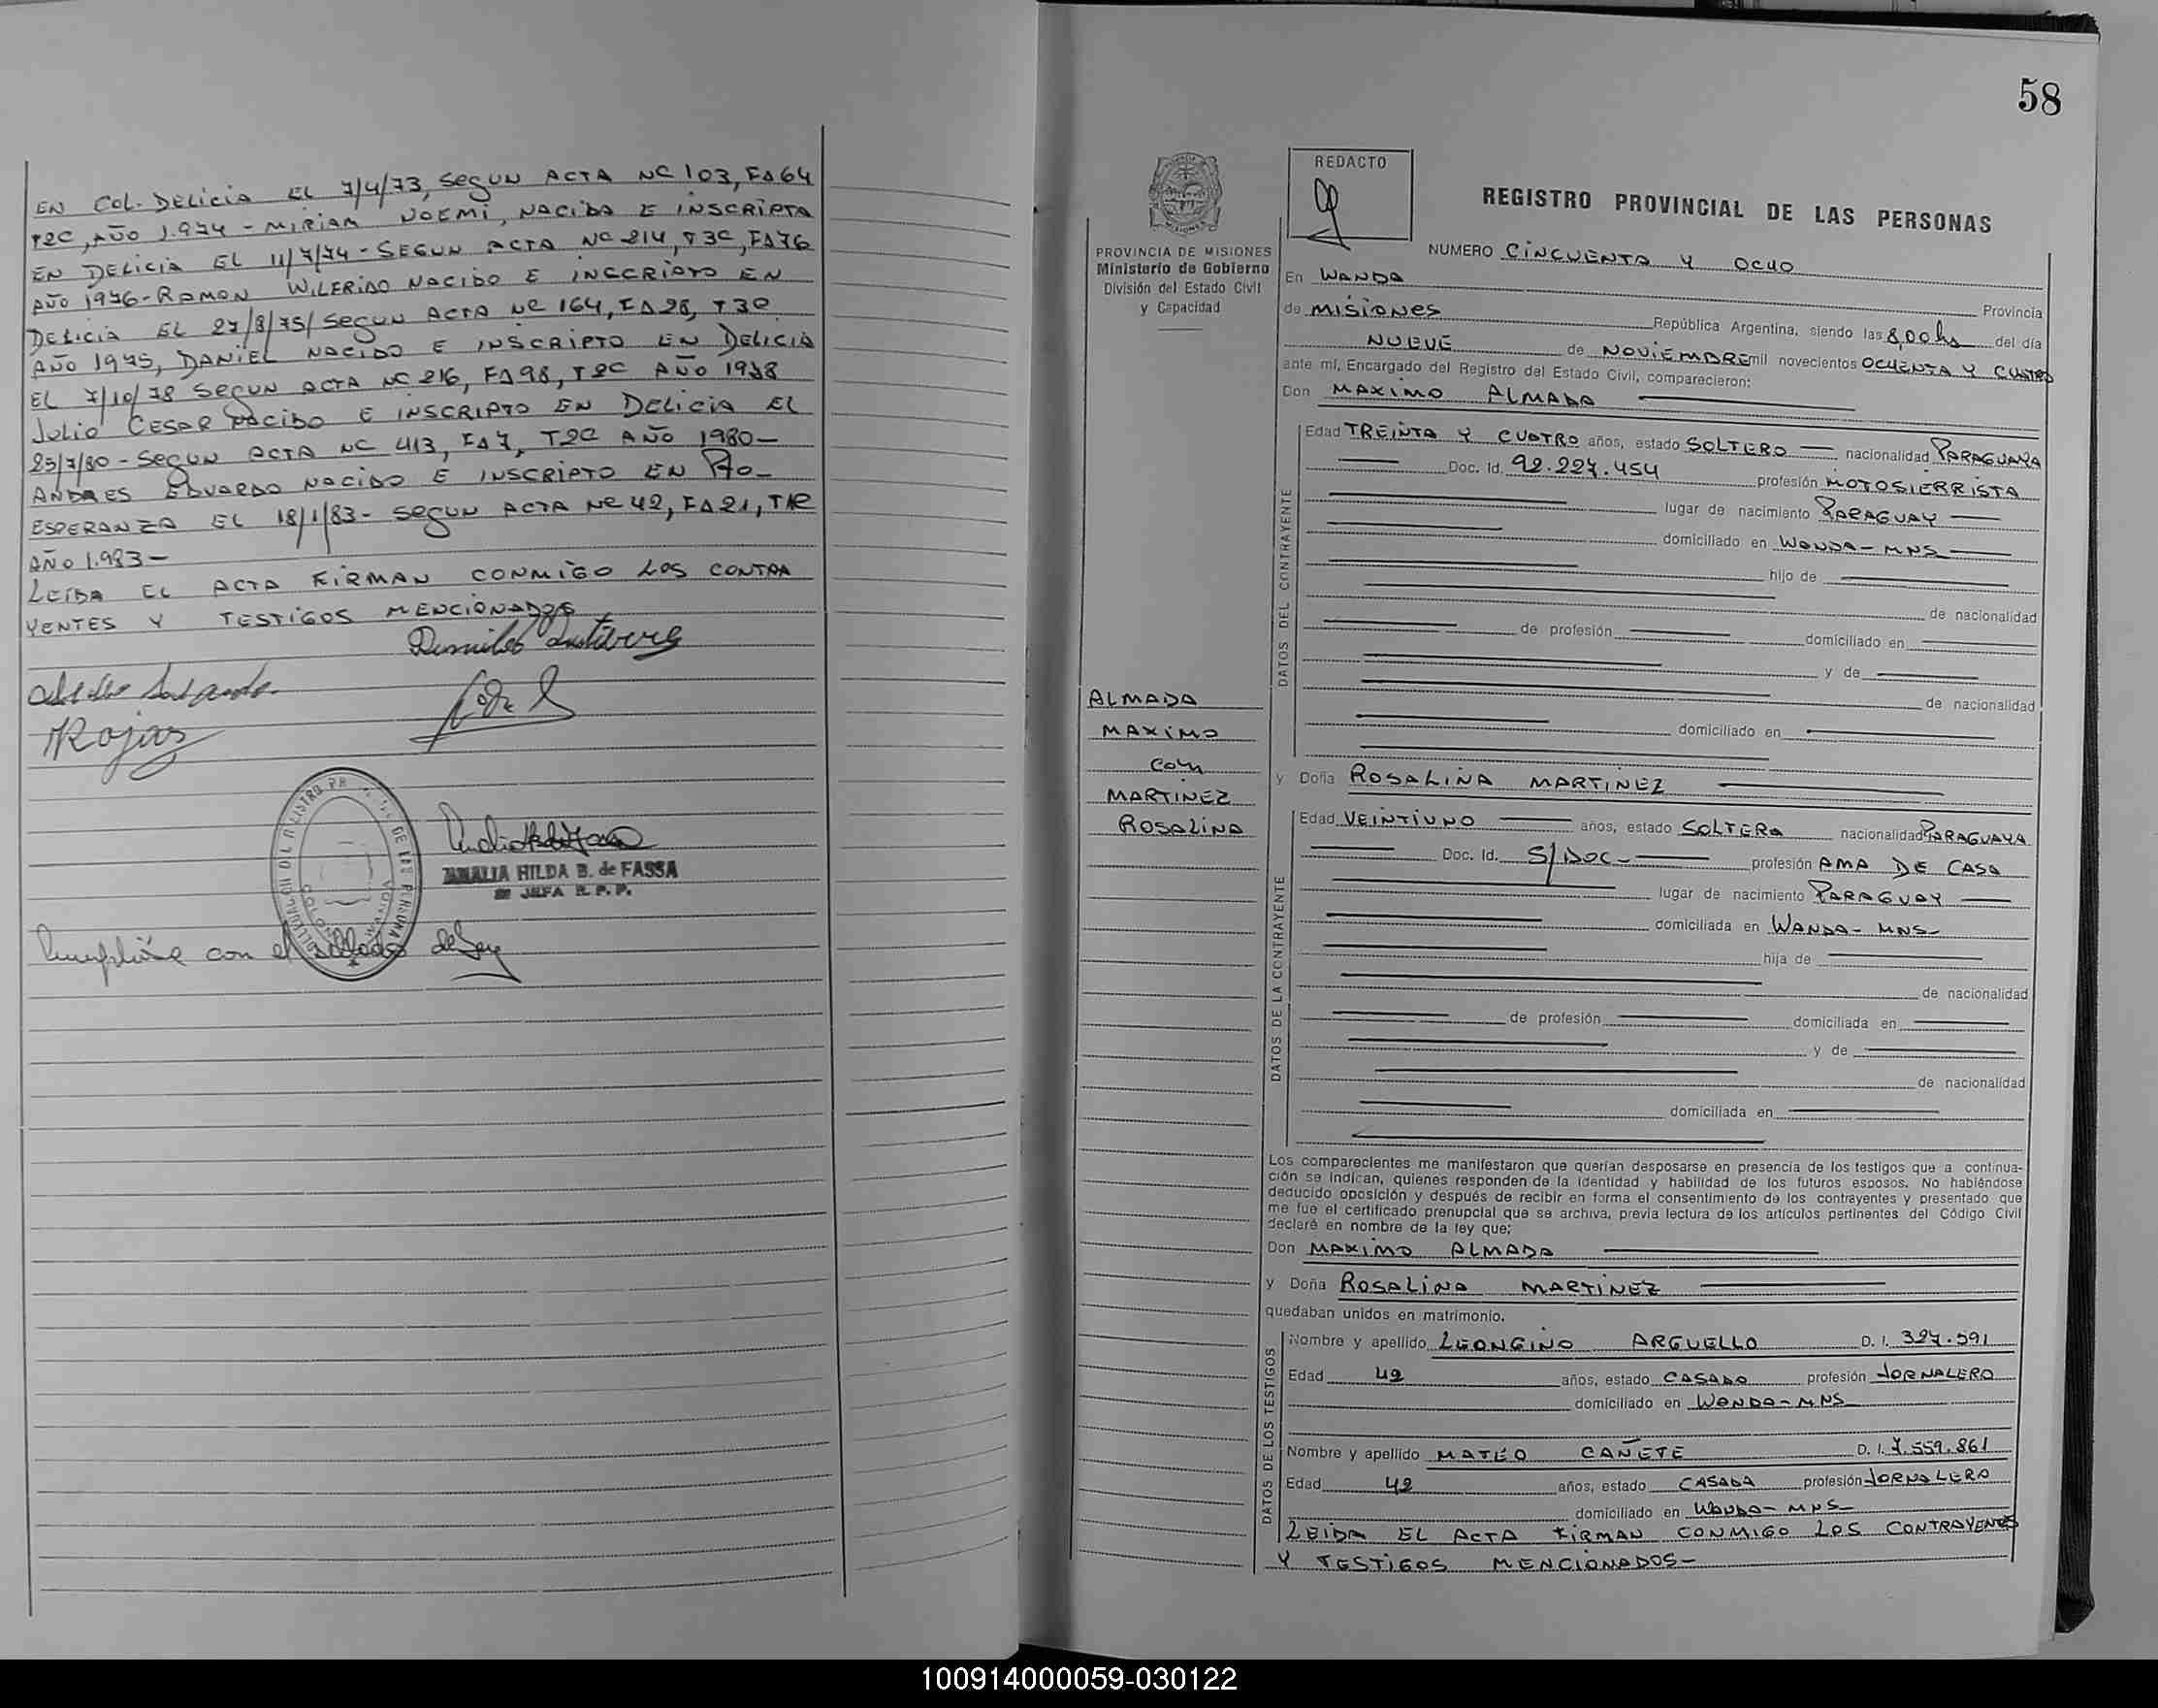 EN COL. DELICIA EL 7/4/73, SEGUN ACTA Nº 103, Fº 64
T2C, AÑO 1.974 - MIRIAM NOEMI, NACIDA E INSCRIPTA
EN DELICIA EL 11/7/74 - SEGUN ACTA Nº 214, T3C, Fº 76
AÑO 1976 - RAMON WILERIDO NACIDO E INSCRIPTO EN
DELICIA EL 27/8/75/ SEGUN ACTA Nº 164, Fº 28, T3º
AÑO 1975, DANIEL NACIDO E INSCRIPTO EN DELICIA
EL 7/10/78 SEGUN ACTA Nº 216, Fº 98, T2C AÑO 1978
JULIO CESAR NACIDO E INSCRIPTO EN DELICIA EL
25/7/80 - SEGUN ACTA Nº 413, Fº 7, T2C AÑO 1980 -
ANDRES EDUARDO NACIDO E INSCRIPTO EN PTO -
ESPERANZA EL 18/1/83 - SEGUN ACTA Nº 42, Fº 21, T1º
AÑO 1.983 -
LEIDA EL ACTA FIRMAN CONMIGO LOS CONTRA
YENTES Y TESTIGOS MENCIONADOS
Rojas
AMALIA HILDA B. de FASSA
JEFA R. P. P.
con el
58
REDACTO
REGISTRO PROVINCIAL DE LAS PERSONAS
PROVINCIA DE MISIONES
Ministerio de Gobierno
División del Estado Civil
y Capacidad
NUMERO CINCUENTA Y OCHO
En WANDA Provincia
de MISIONES República Argentina, siendo las 8,00 hs del día
NUEVE de NOVIEMBRE mil novecientos OCHENTA Y CUATRO
ante mí, Encargado del Registro del Estado Civil, comparecieron:
Don MAXIMO ALMADA
DATOS DEL CONTRAYENTE
Edad TREINTA Y CUATRO años, estado SOLTERO nacionalidad PARAGUAYA
Doc. Id. 92.227.454 profesión MOTOSIERRISTA
lugar de nacimiento PARAGUAY
domiciliado en WANDA - MNS
hijo de
de nacionalidad
de profesión domiciliado en
y de
de nacionalidad
domiciliado en
ALMADA
MAXIMO
CON
MARTINEZ
ROSALINA
y Doña ROSALINA MARTINEZ
DATOS DE LA CONTRAYENTE
Edad VEINTIUNO años, estado SOLTERA nacionalidad PARAGUAYA
Doc. Id. S/DOC - profesión AMA DE CASA
lugar de nacimiento PARAGUAY
domiciliada en WANDA - MNS -
hija de
de nacionalidad
de profesión domiciliada en
y de
de nacionalidad
domiciliada en
Los comparecientes me manifestaron que querían desposarse en presencia de los testigos que a continua-
ción se indican, quienes responden de la identidad y habilidad de los futuros esposos. No habiéndose
deducido oposición y después de recibir en forma el consentimiento de los contrayentes y presentado que
me fue el certificado prenupcial que se archiva, previa lectura de los artículos pertinentes del Código Civil
declaré en nombre de la ley que:
Don MAXIMO ALMADA
y Doña ROSALINA MARTINEZ
quedaban unidos en matrimonio.
DATOS DE LOS TESTIGOS
Nombre y apellido LEONGINO ARGUELLO D. I. 327.591
Edad 42 años, estado CASADO profesión JORNALERO
domiciliado en WANDA - MNS
Nombre y apellido MATEO CAÑETE D. I. 7.559.861
Edad 42 años, estado CASADA profesión JORNALERO
domiciliado en WANDA - MNS -
LEIDA EL ACTA FIRMAN CONMIGO LOS CONTRAYENTES
Y TESTIGOS MENCIONADOS -
100914000059-030122